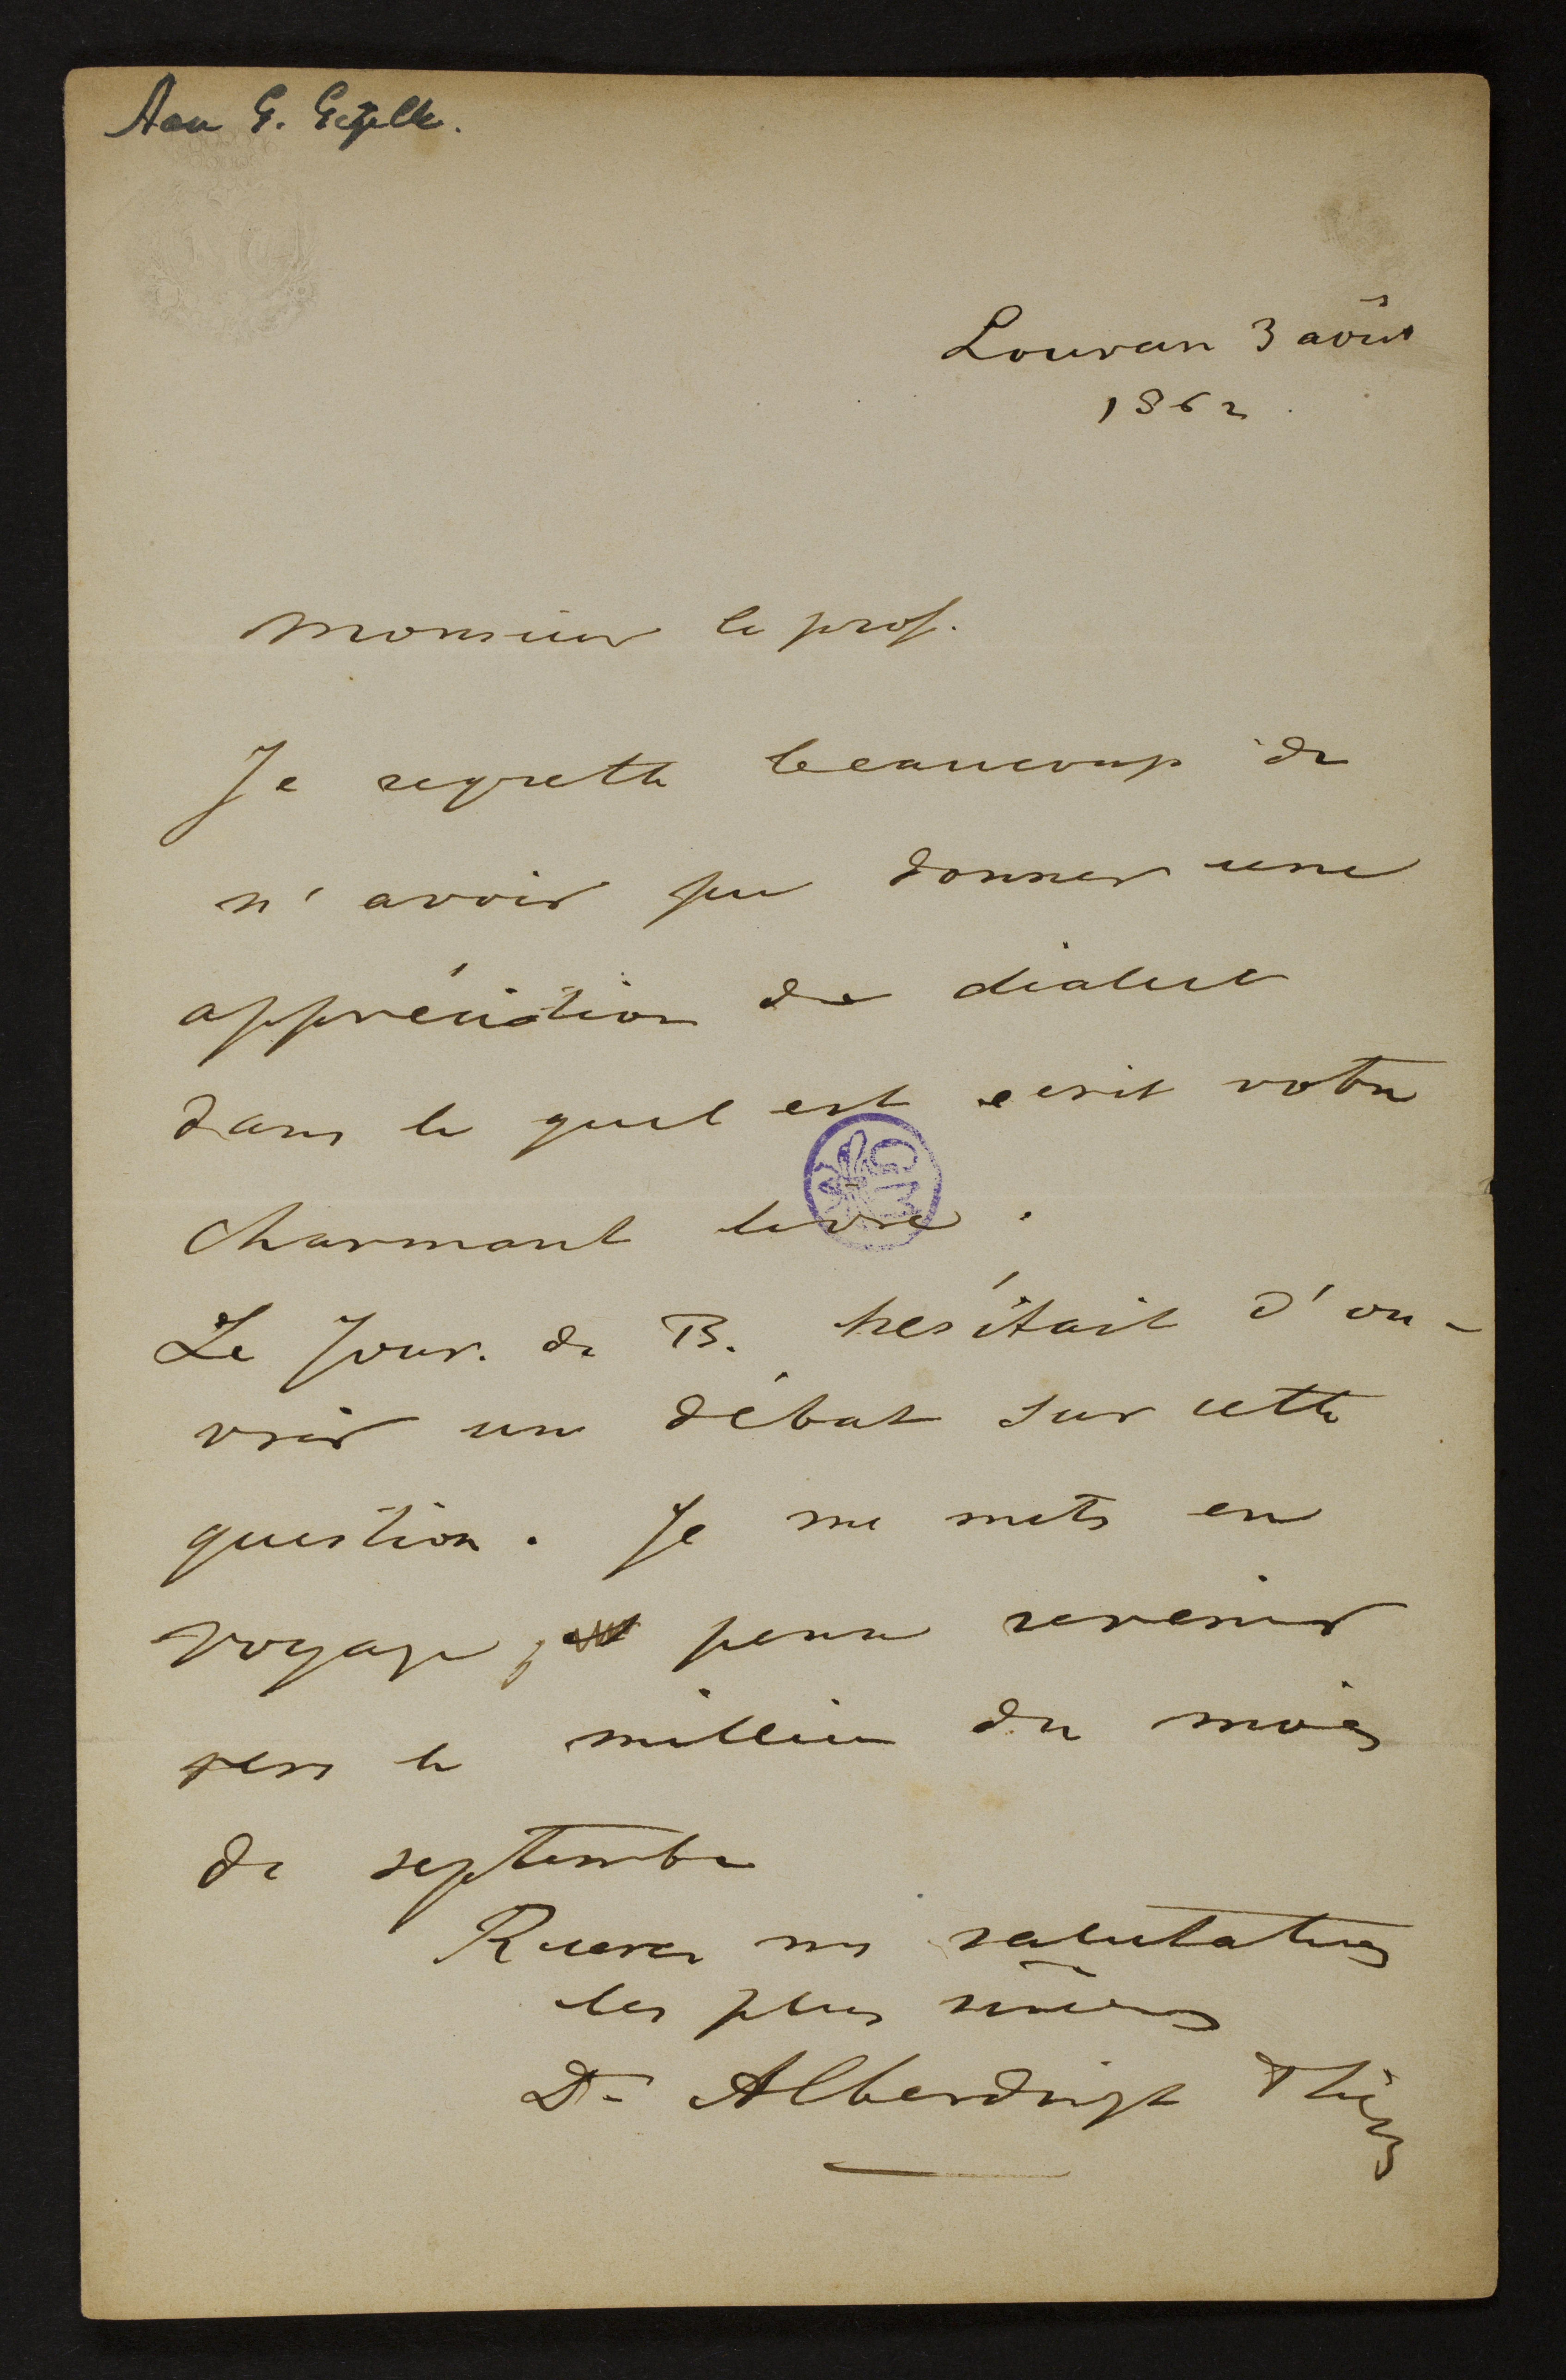 Aan G. Gezelle.
Louvain 3 août
1862.
Monsieur le prof.
Je regrette beaucoup de
n'avoir pu donner une
appréciation de dialect
dans le quel est ecrit votre
charmant livre.
Le Jour. de B. hésitait d'ou-
vrir un débat sur cette
question. Je me mets en
voyage, pour revenir
vers le millieu du mois
de septembre
Recevez mes salutations
les plus sincères
Dr Alberdingk Thijm